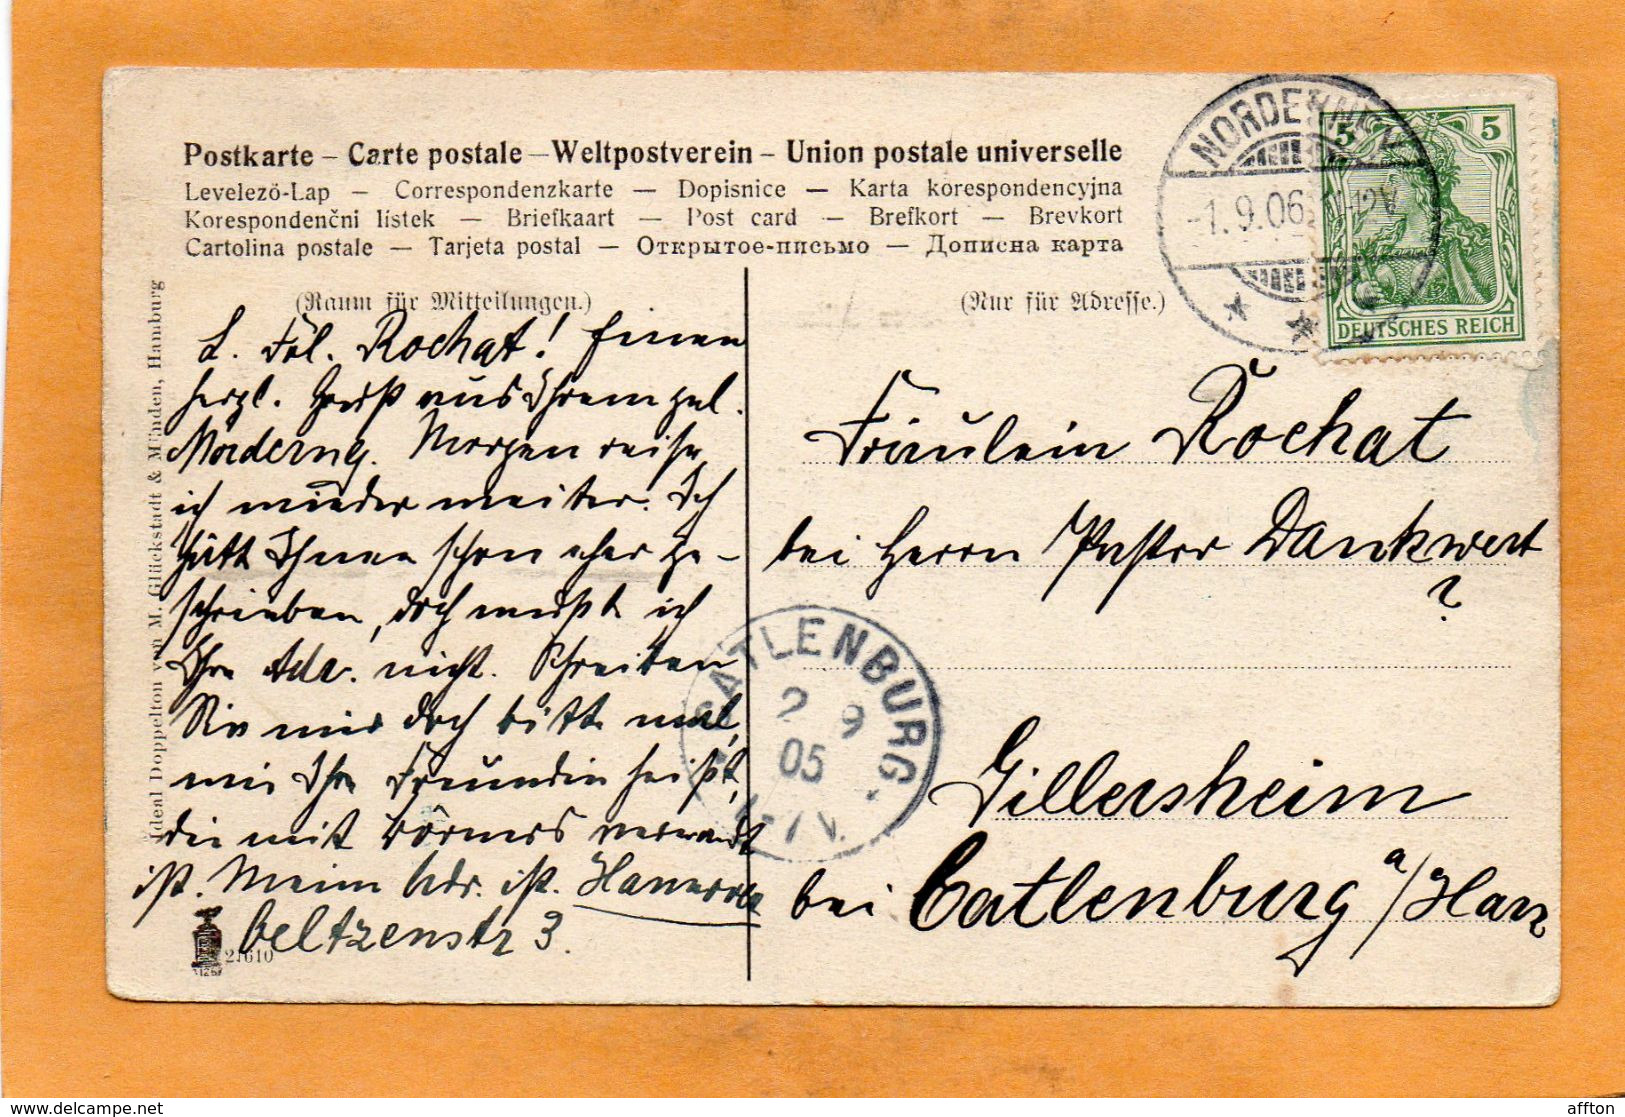 Postkarte – Carte postale – Weltpostverein – Union postale universelle
Levelezö-Lap — Correspondenzkarte — Dopisnice — Karta korespondencyjna
Korespondenční lístek — Briefkaart — Post card — Brefkort — Brevkort
Cartolina postale — Tarjeta postal — Открытое-письмо — Дописна карта
(Raum für Mitteilungen.)
(Nur für Adresse.)
NORDERNEY
1.9.06. 11-12V
5 5
DEUTSCHES REICH
L. Frl. Rochat! Einen
herzl. Gruß aus Ihrem gel.
Norderney. Morgen reise
ich wieder weiter. Ich
hätt Ihnen schon eher ge-
schrieben, doch wußte ich
Ihre Adr. nicht. Schreiben
Sie mir doch bitte mal,
wie Ihre Freundin heißt,
die mit Körners verwandt
ist. Meine Adr. ist. Hannover
Oeltzenstr 3.
Fräulein Rochat
bei Herrn Pastor Dankwert
?
Gillersheim
bei Catlenburg a/Harz
CATLENBURG
2 9
05
Ideal Doppelton von M. Glückstadt & Münden, Hamburg
21610
affton